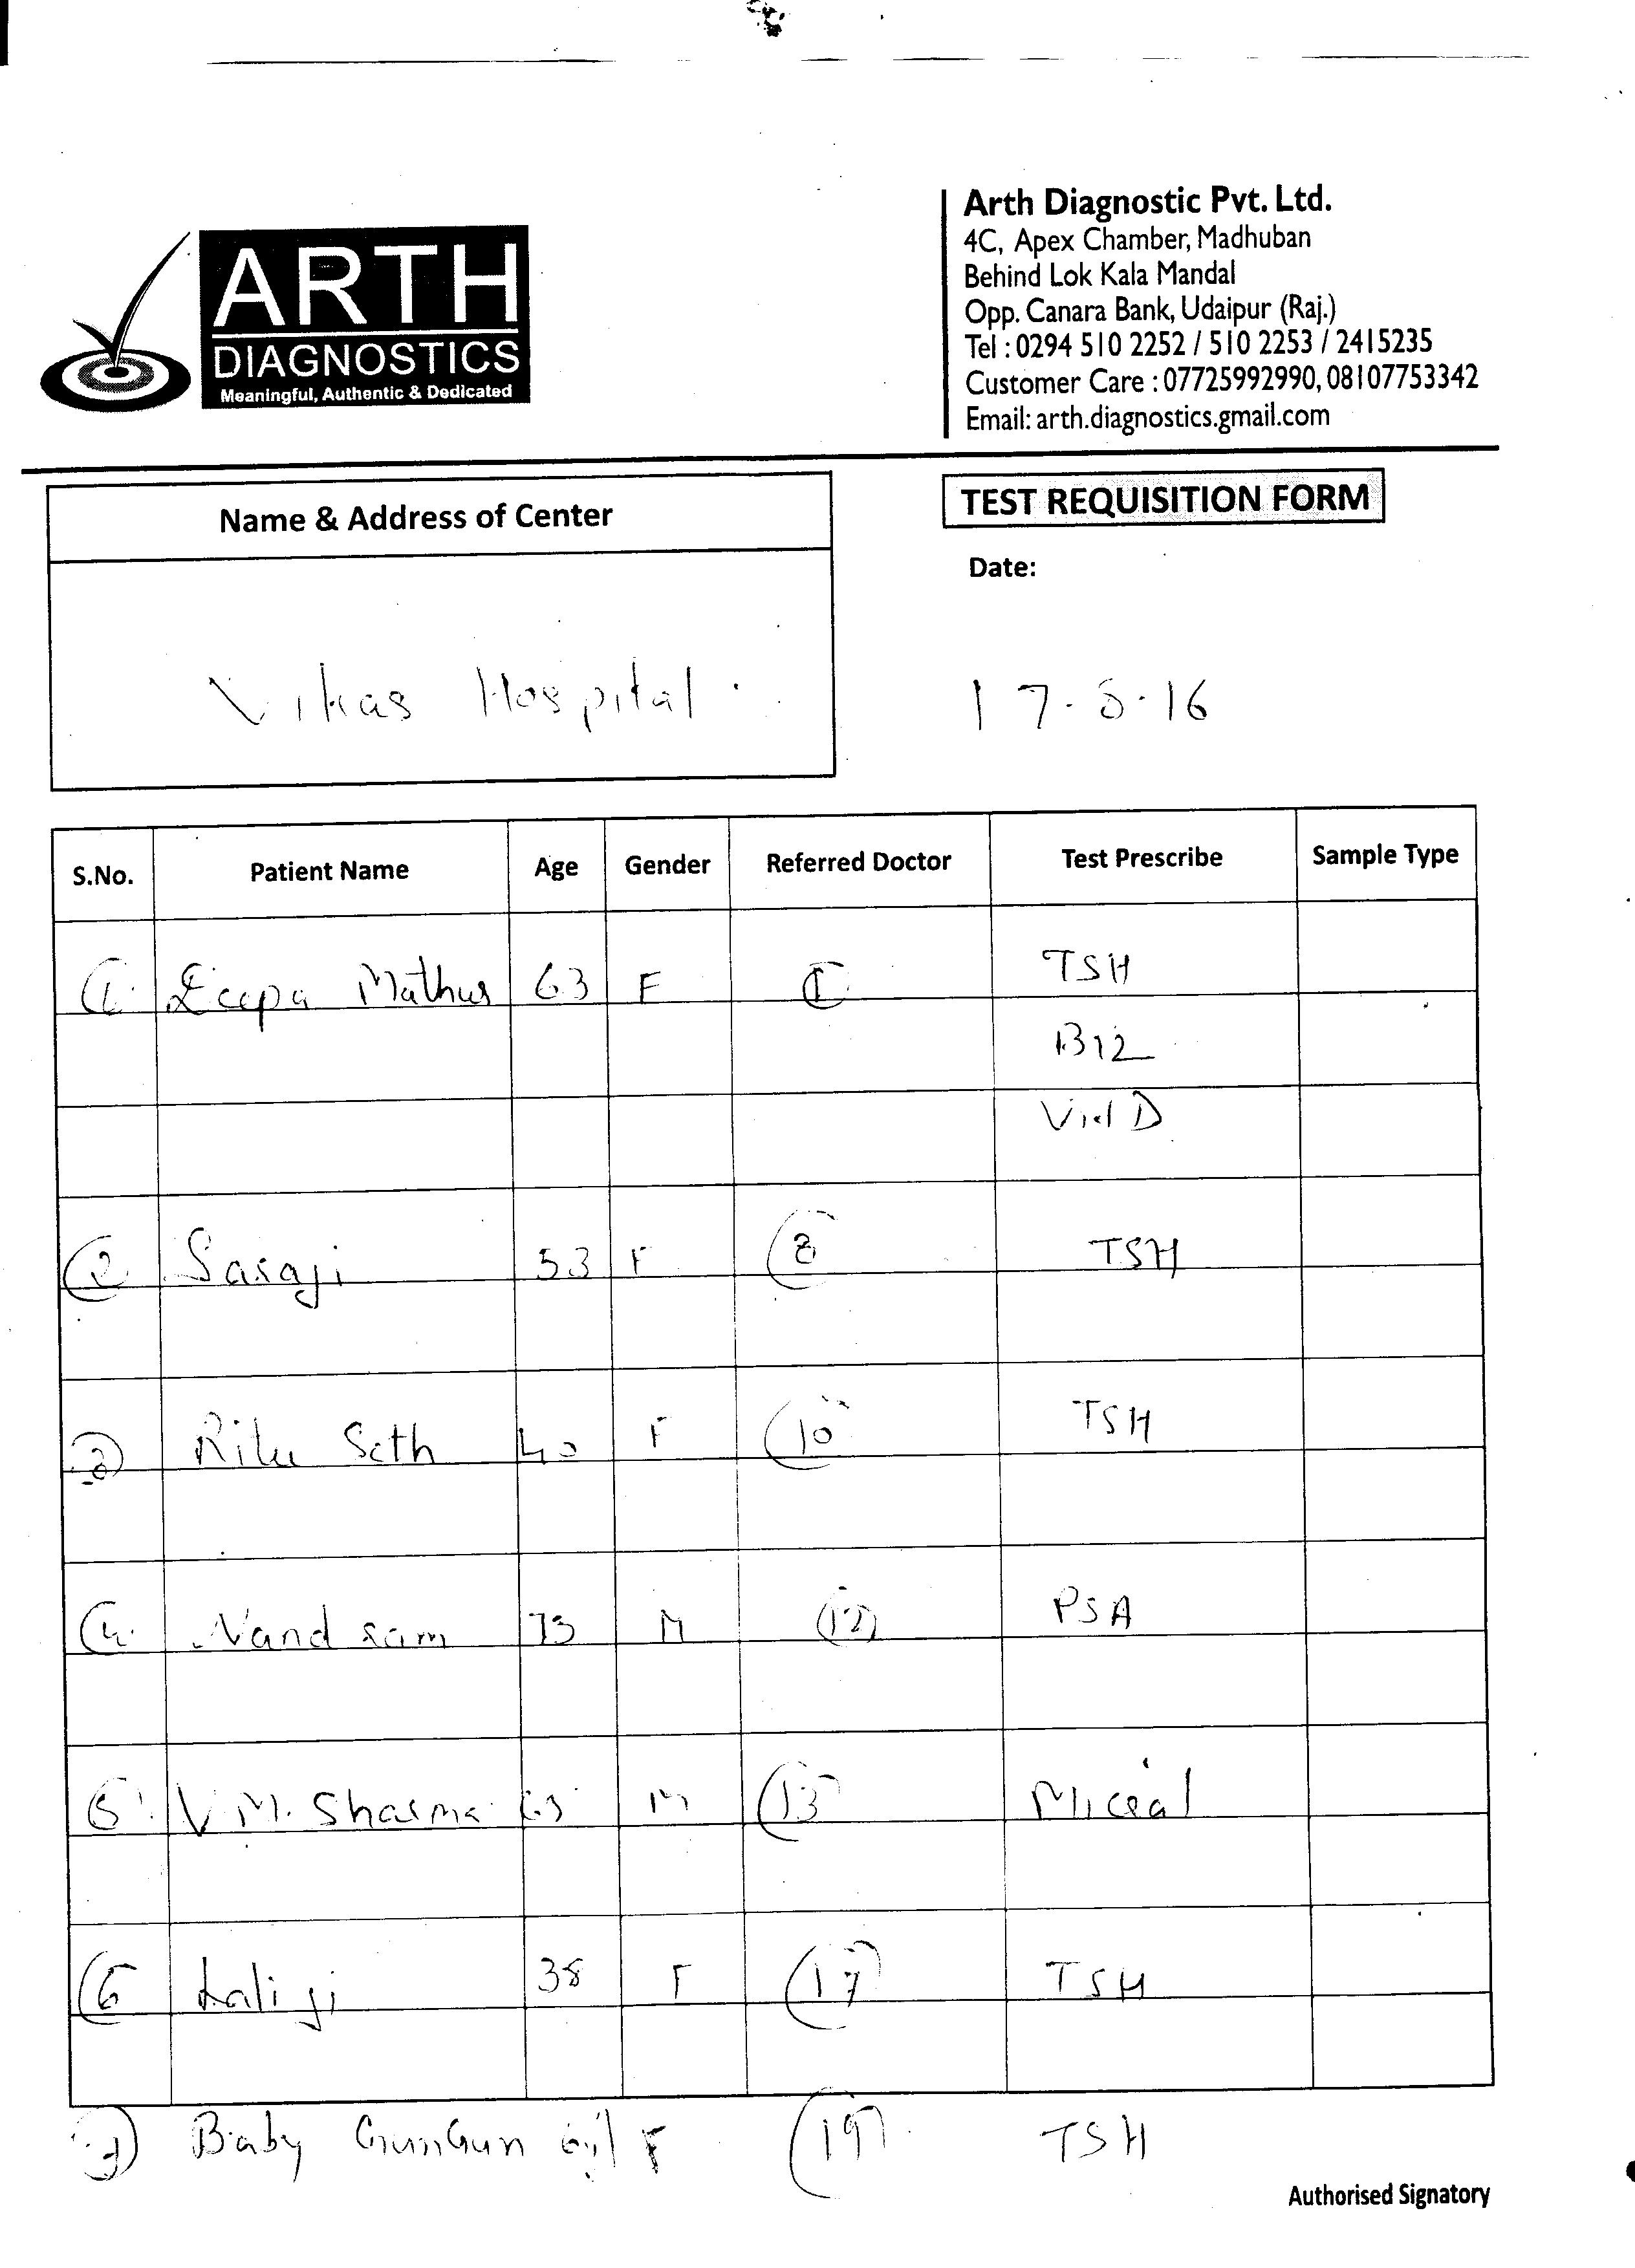 ARTH
DIAGNOSTICS
Meaningful, Authentic & Dedicated
Arth Diagnostic Pvt. Ltd.
4C, Apex Chamber, Madhuban
Behind Lok Kala Mandal
Opp. Canara Bank, Udaipur (Raj.)
Tel : 0294 510 2252 / 510 2253 / 2415235
Customer Care : 07725992990, 08107753342
Email: arth.diagnostics.gmail.com
Name & Address of Center
TEST REQUISITION FORM
Date:
Vikas Hospital
17.8.16
S.No. Patient Name Age Gender Referred Doctor Test Prescribe Sample Type
1 Mathur 63 F 1 TSH
B12
Vit D
2 Saraji 53 F 8 TSH
3 Ritu Seth 40 F 10 TSH
4 Nand ram 73 M 12 PSA
5 V.M. Sharma 63 M 13 Micral
6 Laliji 38 F 17 TSH
7 Baby GunGun F 19 TSH
Authorised Signatory